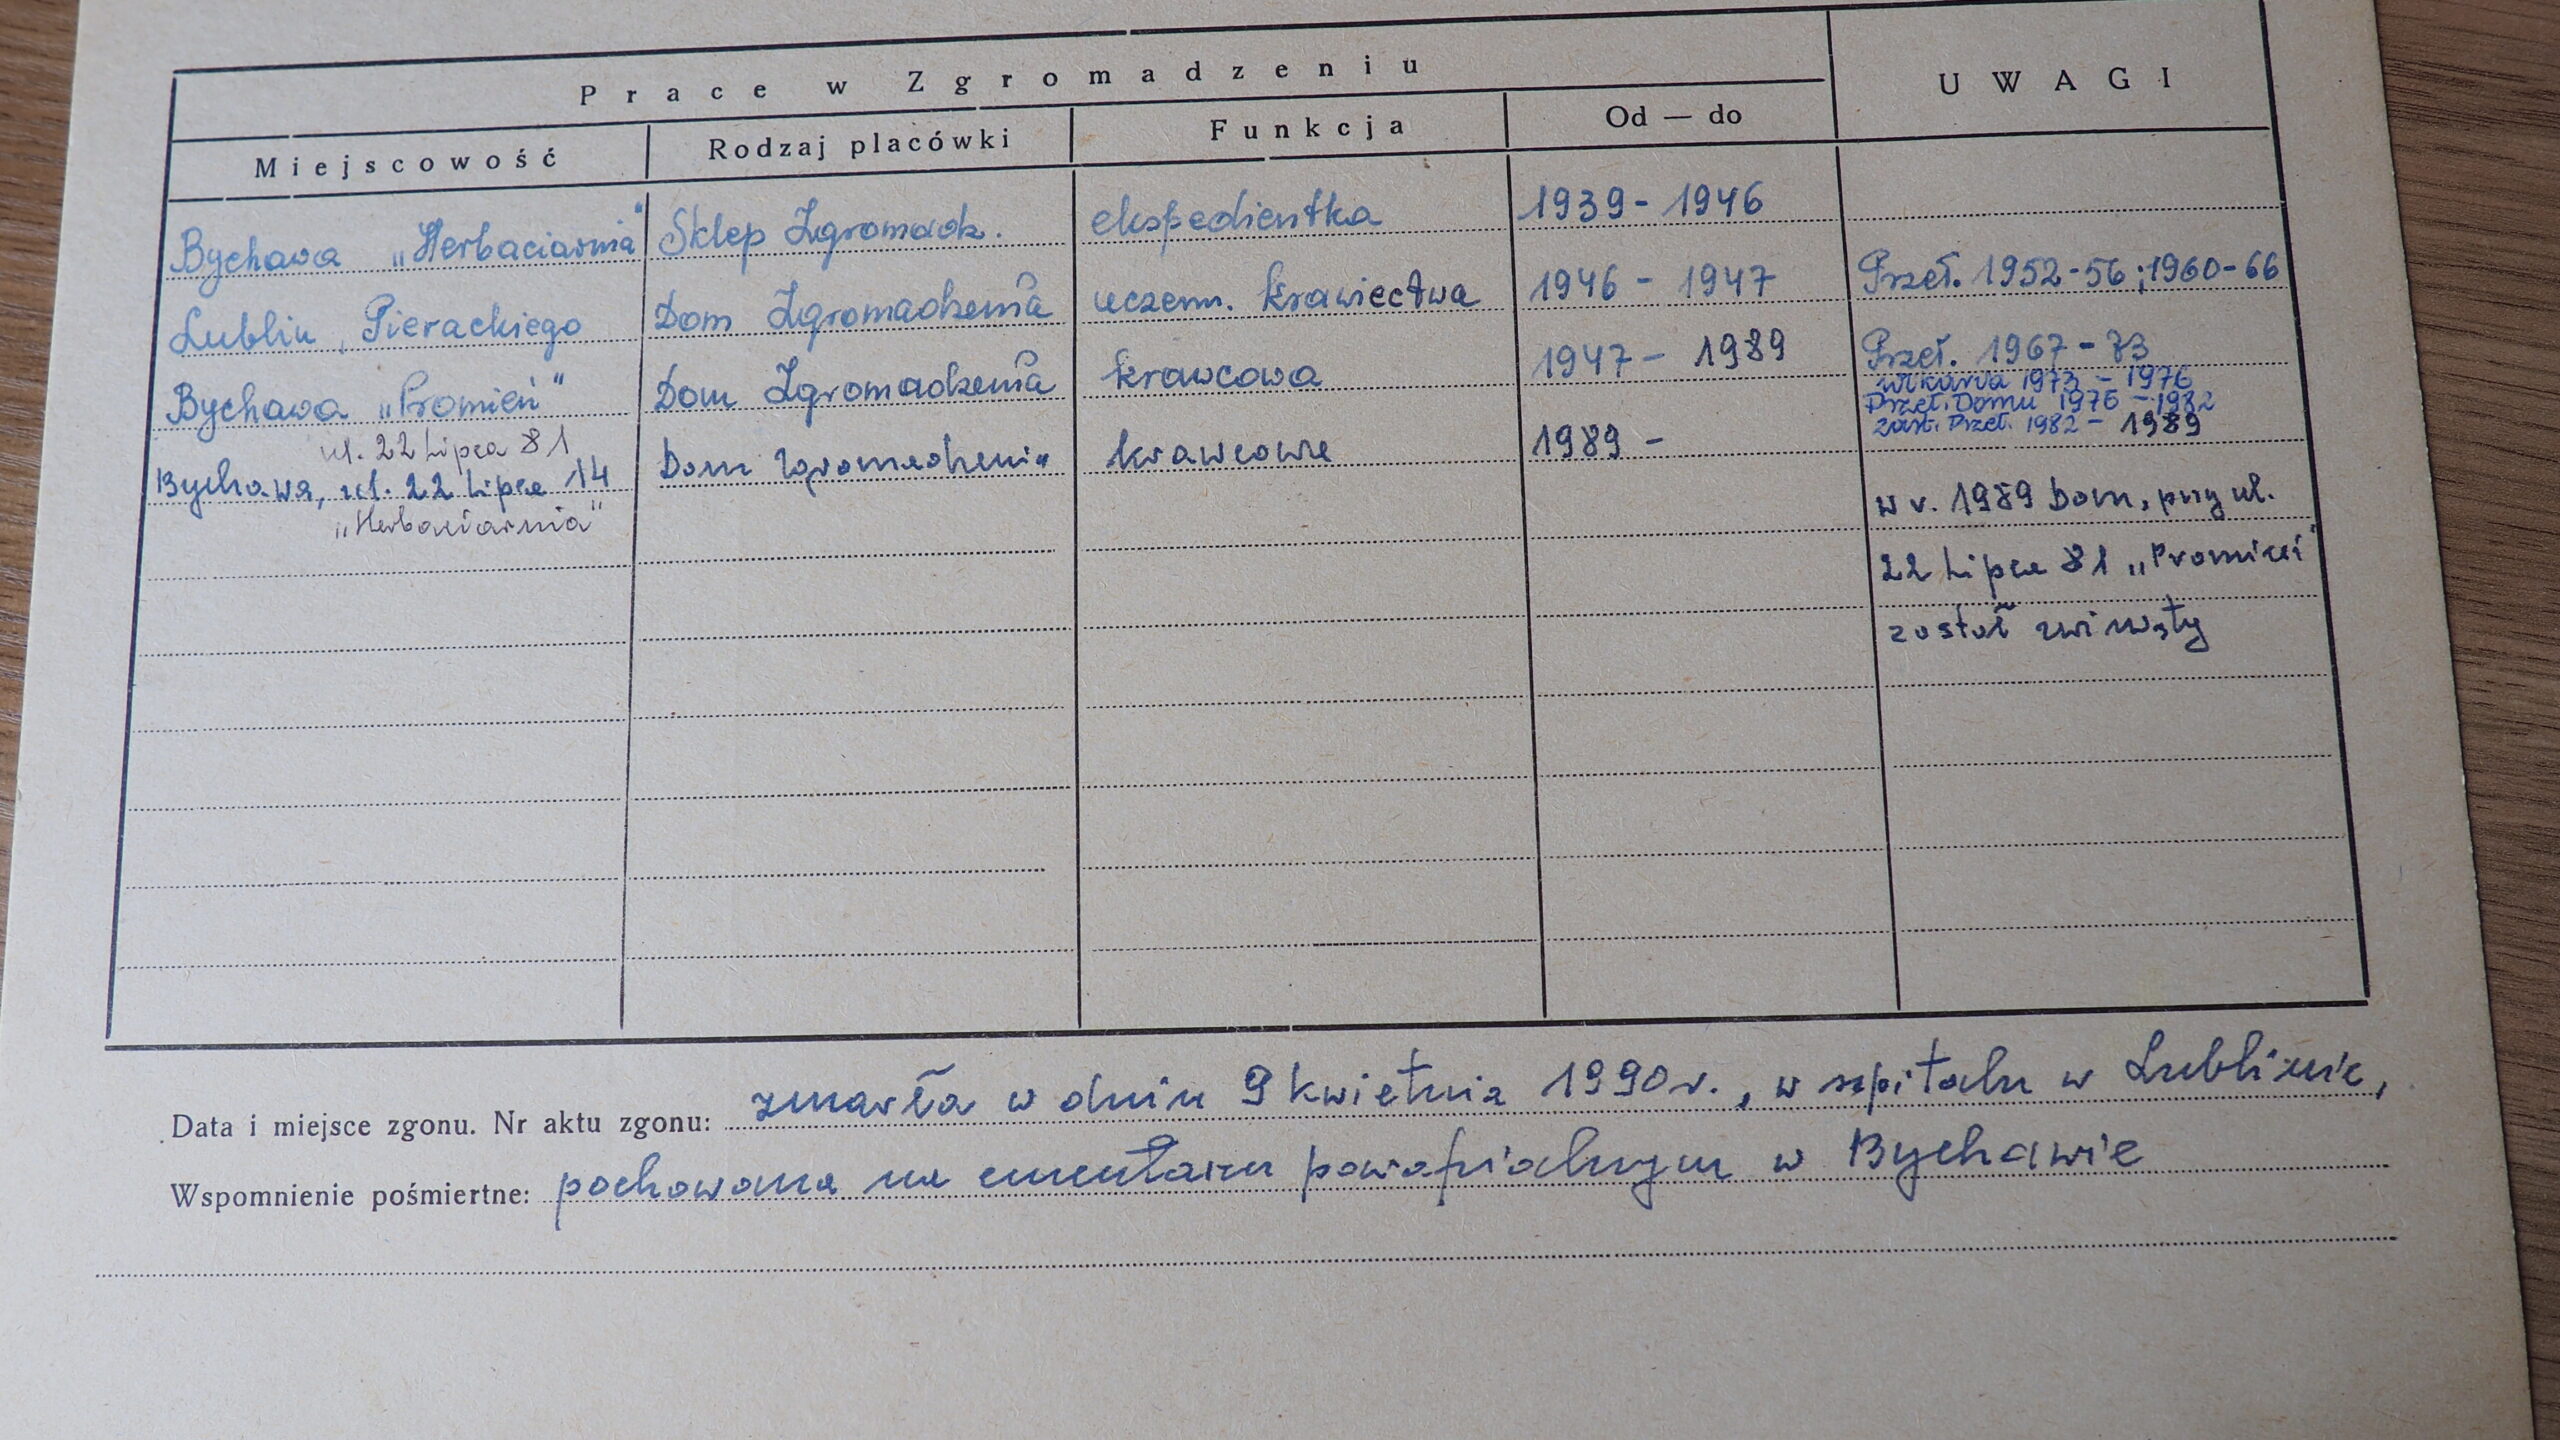 Prace w Zgromadzeniu
UWAGI
Miejscowość Rodzaj placówki Funkcja Od — do
Bychawa „Herbaciarnia" Sklep Zgromadz. ekspedientka 1939 - 1946
Lublin, Pierackiego Dom Zgromadzenia uczenn. krawiectwa 1946 - 1947 Przeł. 1952-56; 1960-66
Bychawa „Promień" Dom Zgromadzenia krawcowa 1947 - 1989 Przeł. 1967 - 73
wikaria 1973 - 1976
Przeł. Domu 1976 - 1982
zast. Przeł. 1982 - 1989
ul. 22 Lipca 81
Bychawa, ul. 22 Lipca 14 Dom Zgromadzenia krawcowa 1989 -
„Herbaciarnia"
w r. 1989 Dom, przy ul.
22 Lipca 81 „Promień"
został zwinięty
Data i miejsce zgonu. Nr aktu zgonu: zmarła w dniu 9 kwietnia 1990 r., w szpitalu w Lublinie,
Wspomnienie pośmiertne: pochowana na cmentarzu parafialnym w Bychawie